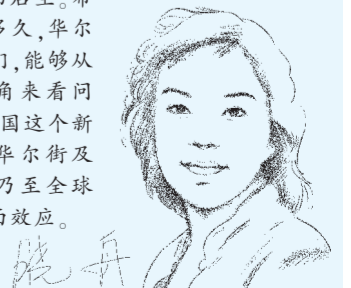 多久,华尔
们,能够从
角来看问
国这个新
华尔街及
乃至全球
面效应。
晓丹